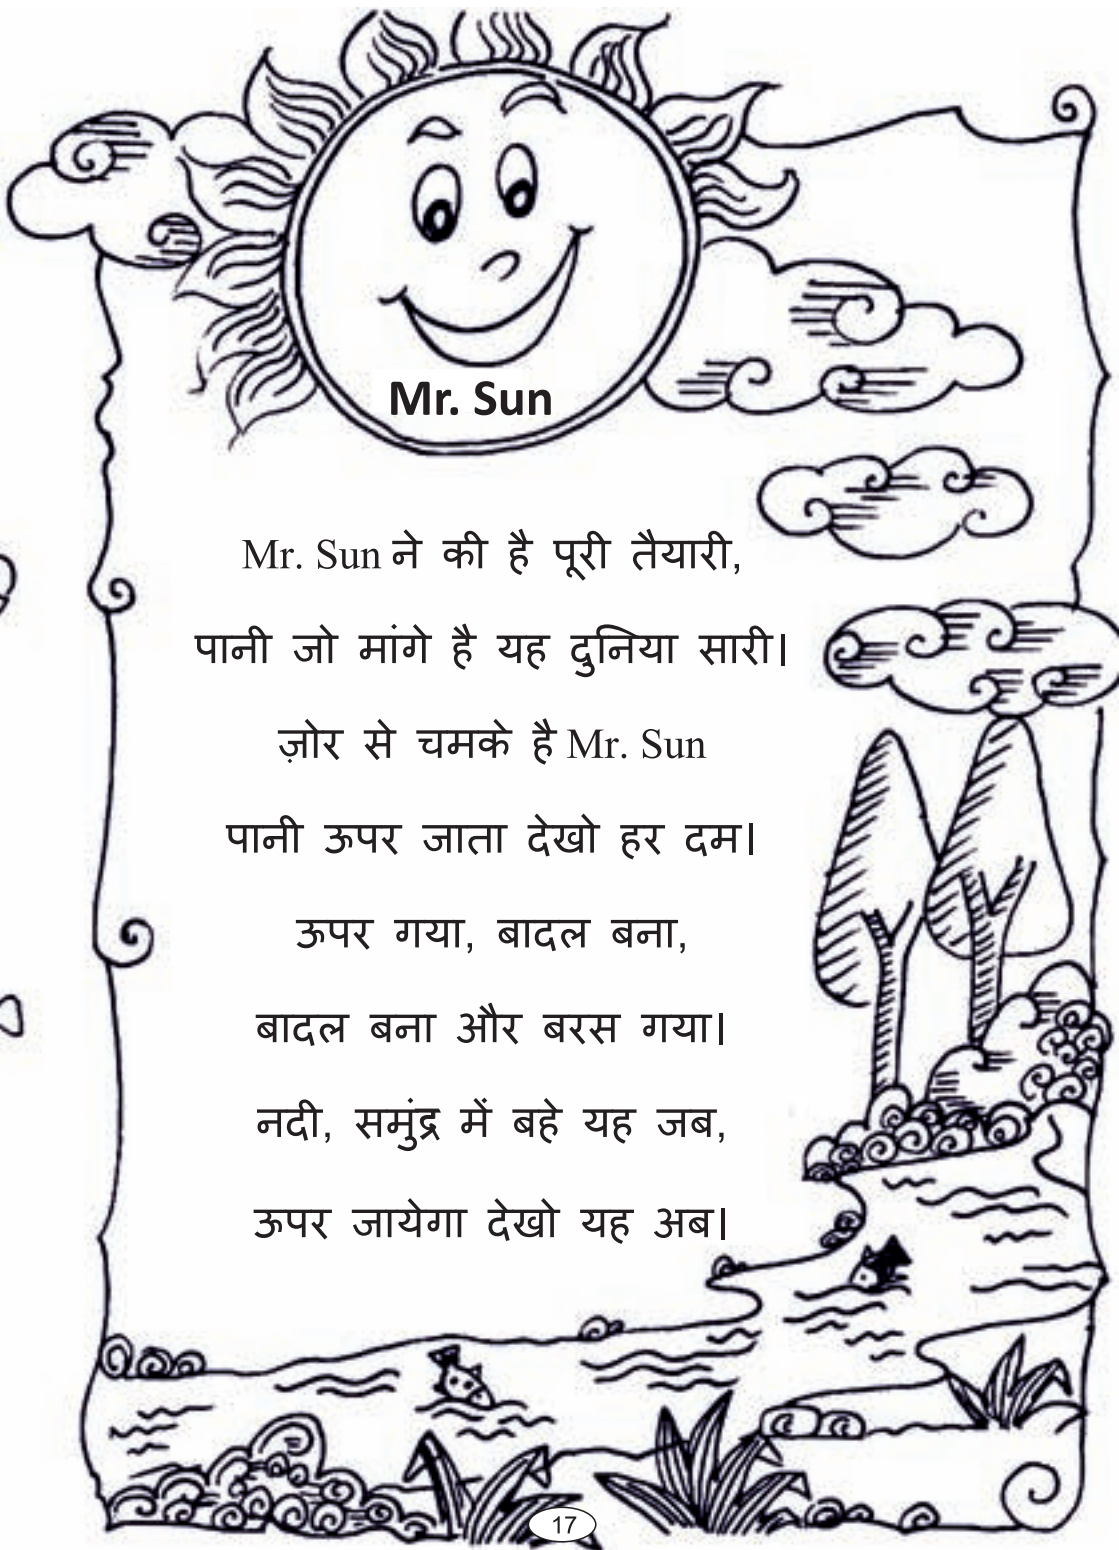 Mr. Sun
Mr. Sun ने की है पूरी तैयारी,
पानी जो मांगे है यह दुनिया सारी।
ज़ोर से चमके है Mr. Sun
पानी ऊपर जाता देखो हर दम।
ऊपर गया, बादल बना,
बादल बना और बरस गया।
नदी, समुंद्र में बहे यह जब,
ऊपर जायेगा देखो यह अब।
17